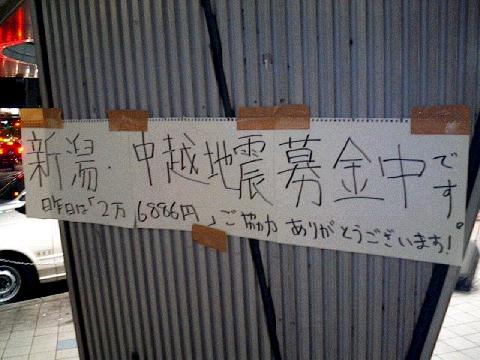 新潟・中越地震募金中です。
昨日は「2万6886円」ご協力ありがとうございます!